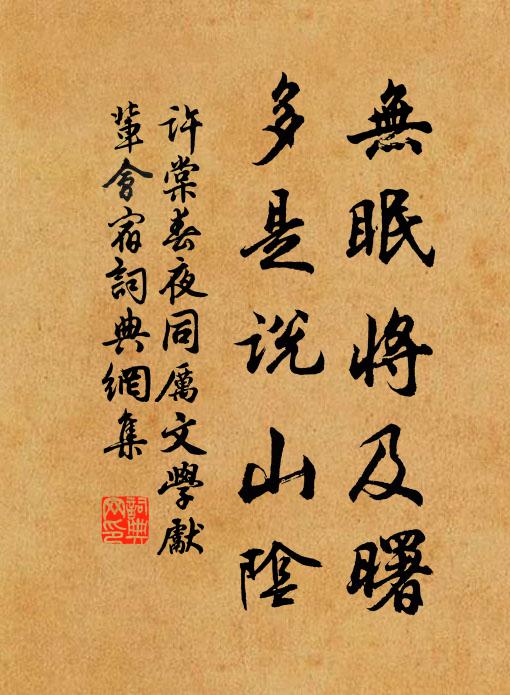 無眠將及曙
多是説山陰
許棠春夜同厲文學獻
輩會宿詞典網集
詞典網印